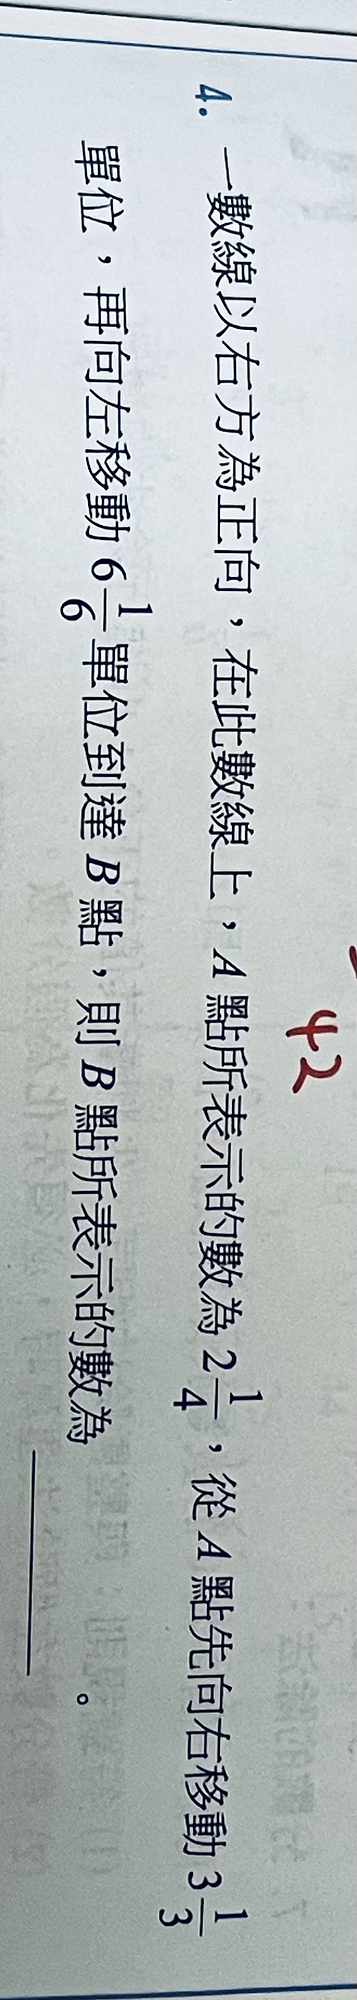 42
4. 一數線以右方為正向，在此數線上，A 點所表示的數為 2 1/4，從 A 點先向右移動 3 1/3
單位，再向左移動 6 1/6 單位到達 B 點，則 B 點所表示的數為______。